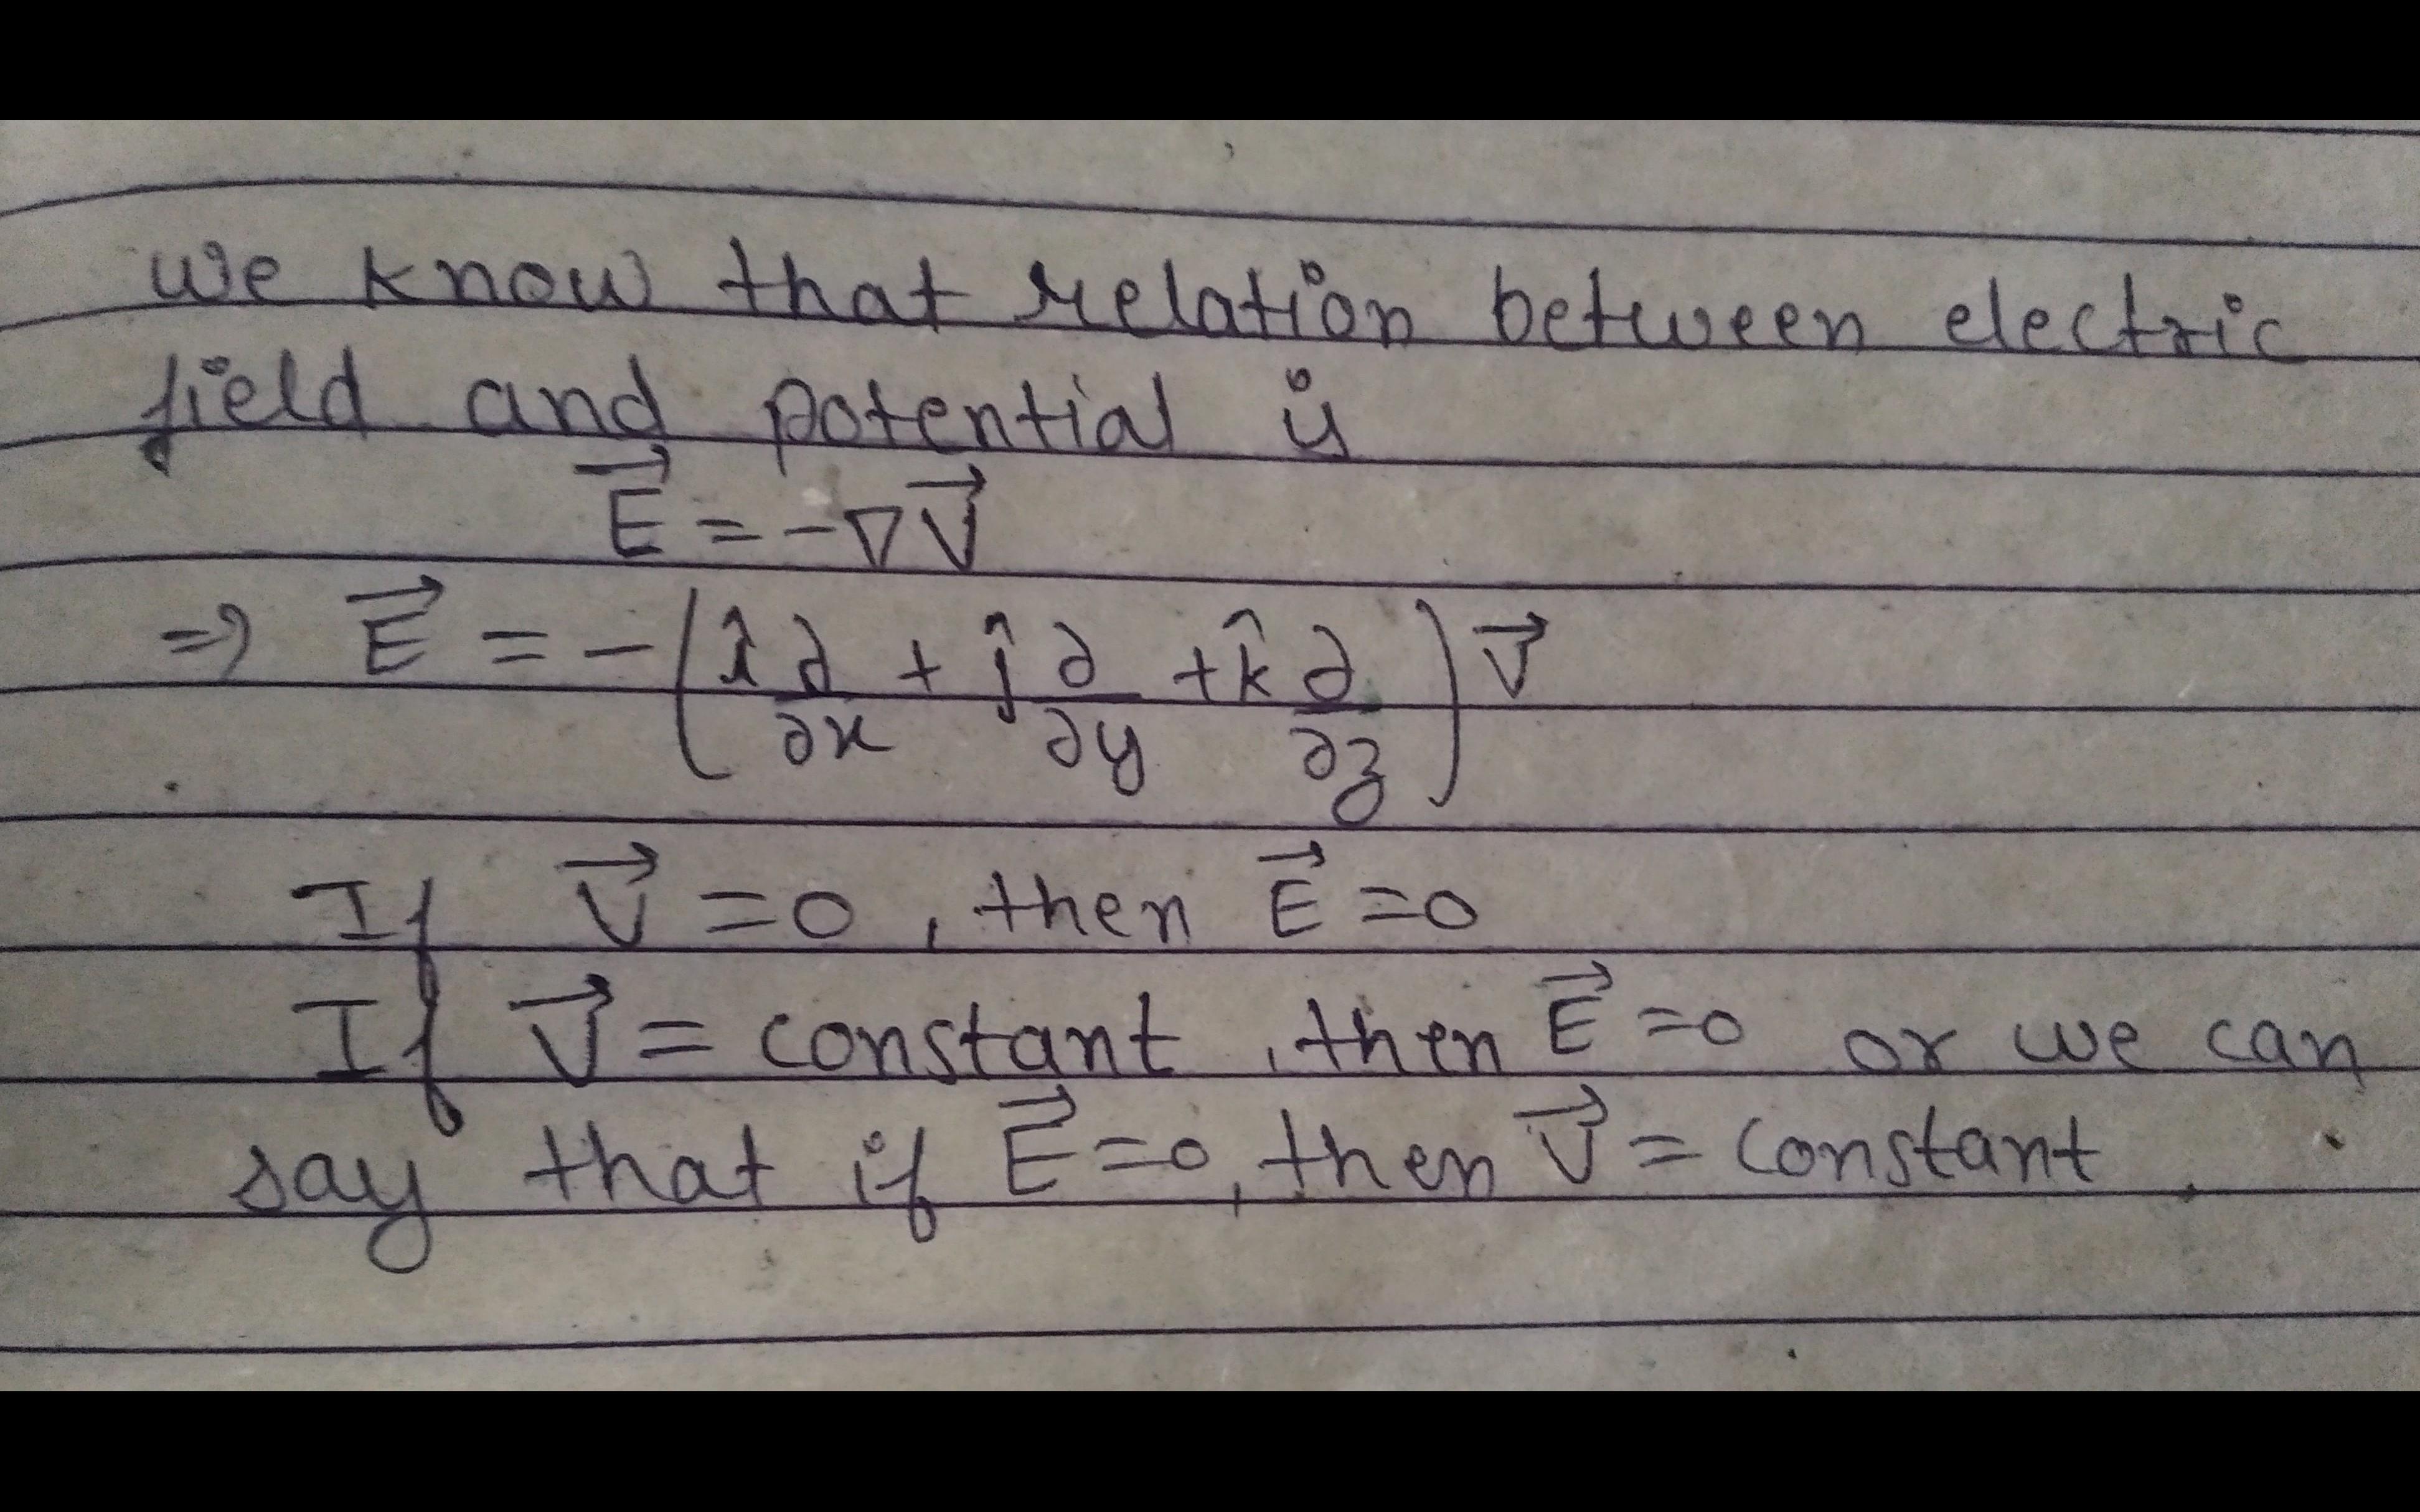 we know that relation between electric
field and potential is
E⃗ = -∇V⃗
⇒ E⃗ = -(î ∂/∂x + ĵ ∂/∂y + k̂ ∂/∂z) V⃗
If V⃗ = 0, then E⃗ = 0
If V⃗ = constant, then E⃗ = 0 or we can
say that if E⃗ = 0, then V⃗ = constant.